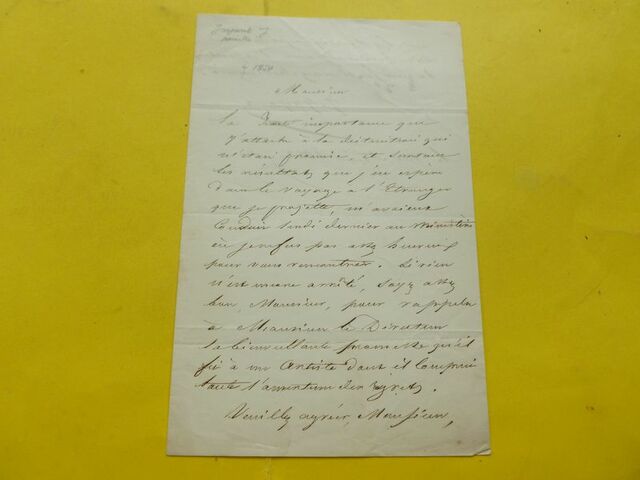 Monsieur
la haute importance que
j'attache à la distinction qui
m'était promise, et surtout
les résultats que j'en espère
dans le voyage à l'Etranger
que je projette, m'avaient
conduit lundi dernier au Ministère
où je n'fus pas assez heureux
pour vous rencontrer. Si rien
n'est encore arrêté, soyez assez
bon, Monsieur, pour rappeler
à Monsieur le Directeur
la bienveillante promesse qu'il
fit à un Artiste dont il comprit
toute l'amertume des regrets.
Veuillez agréer, Monsieur,